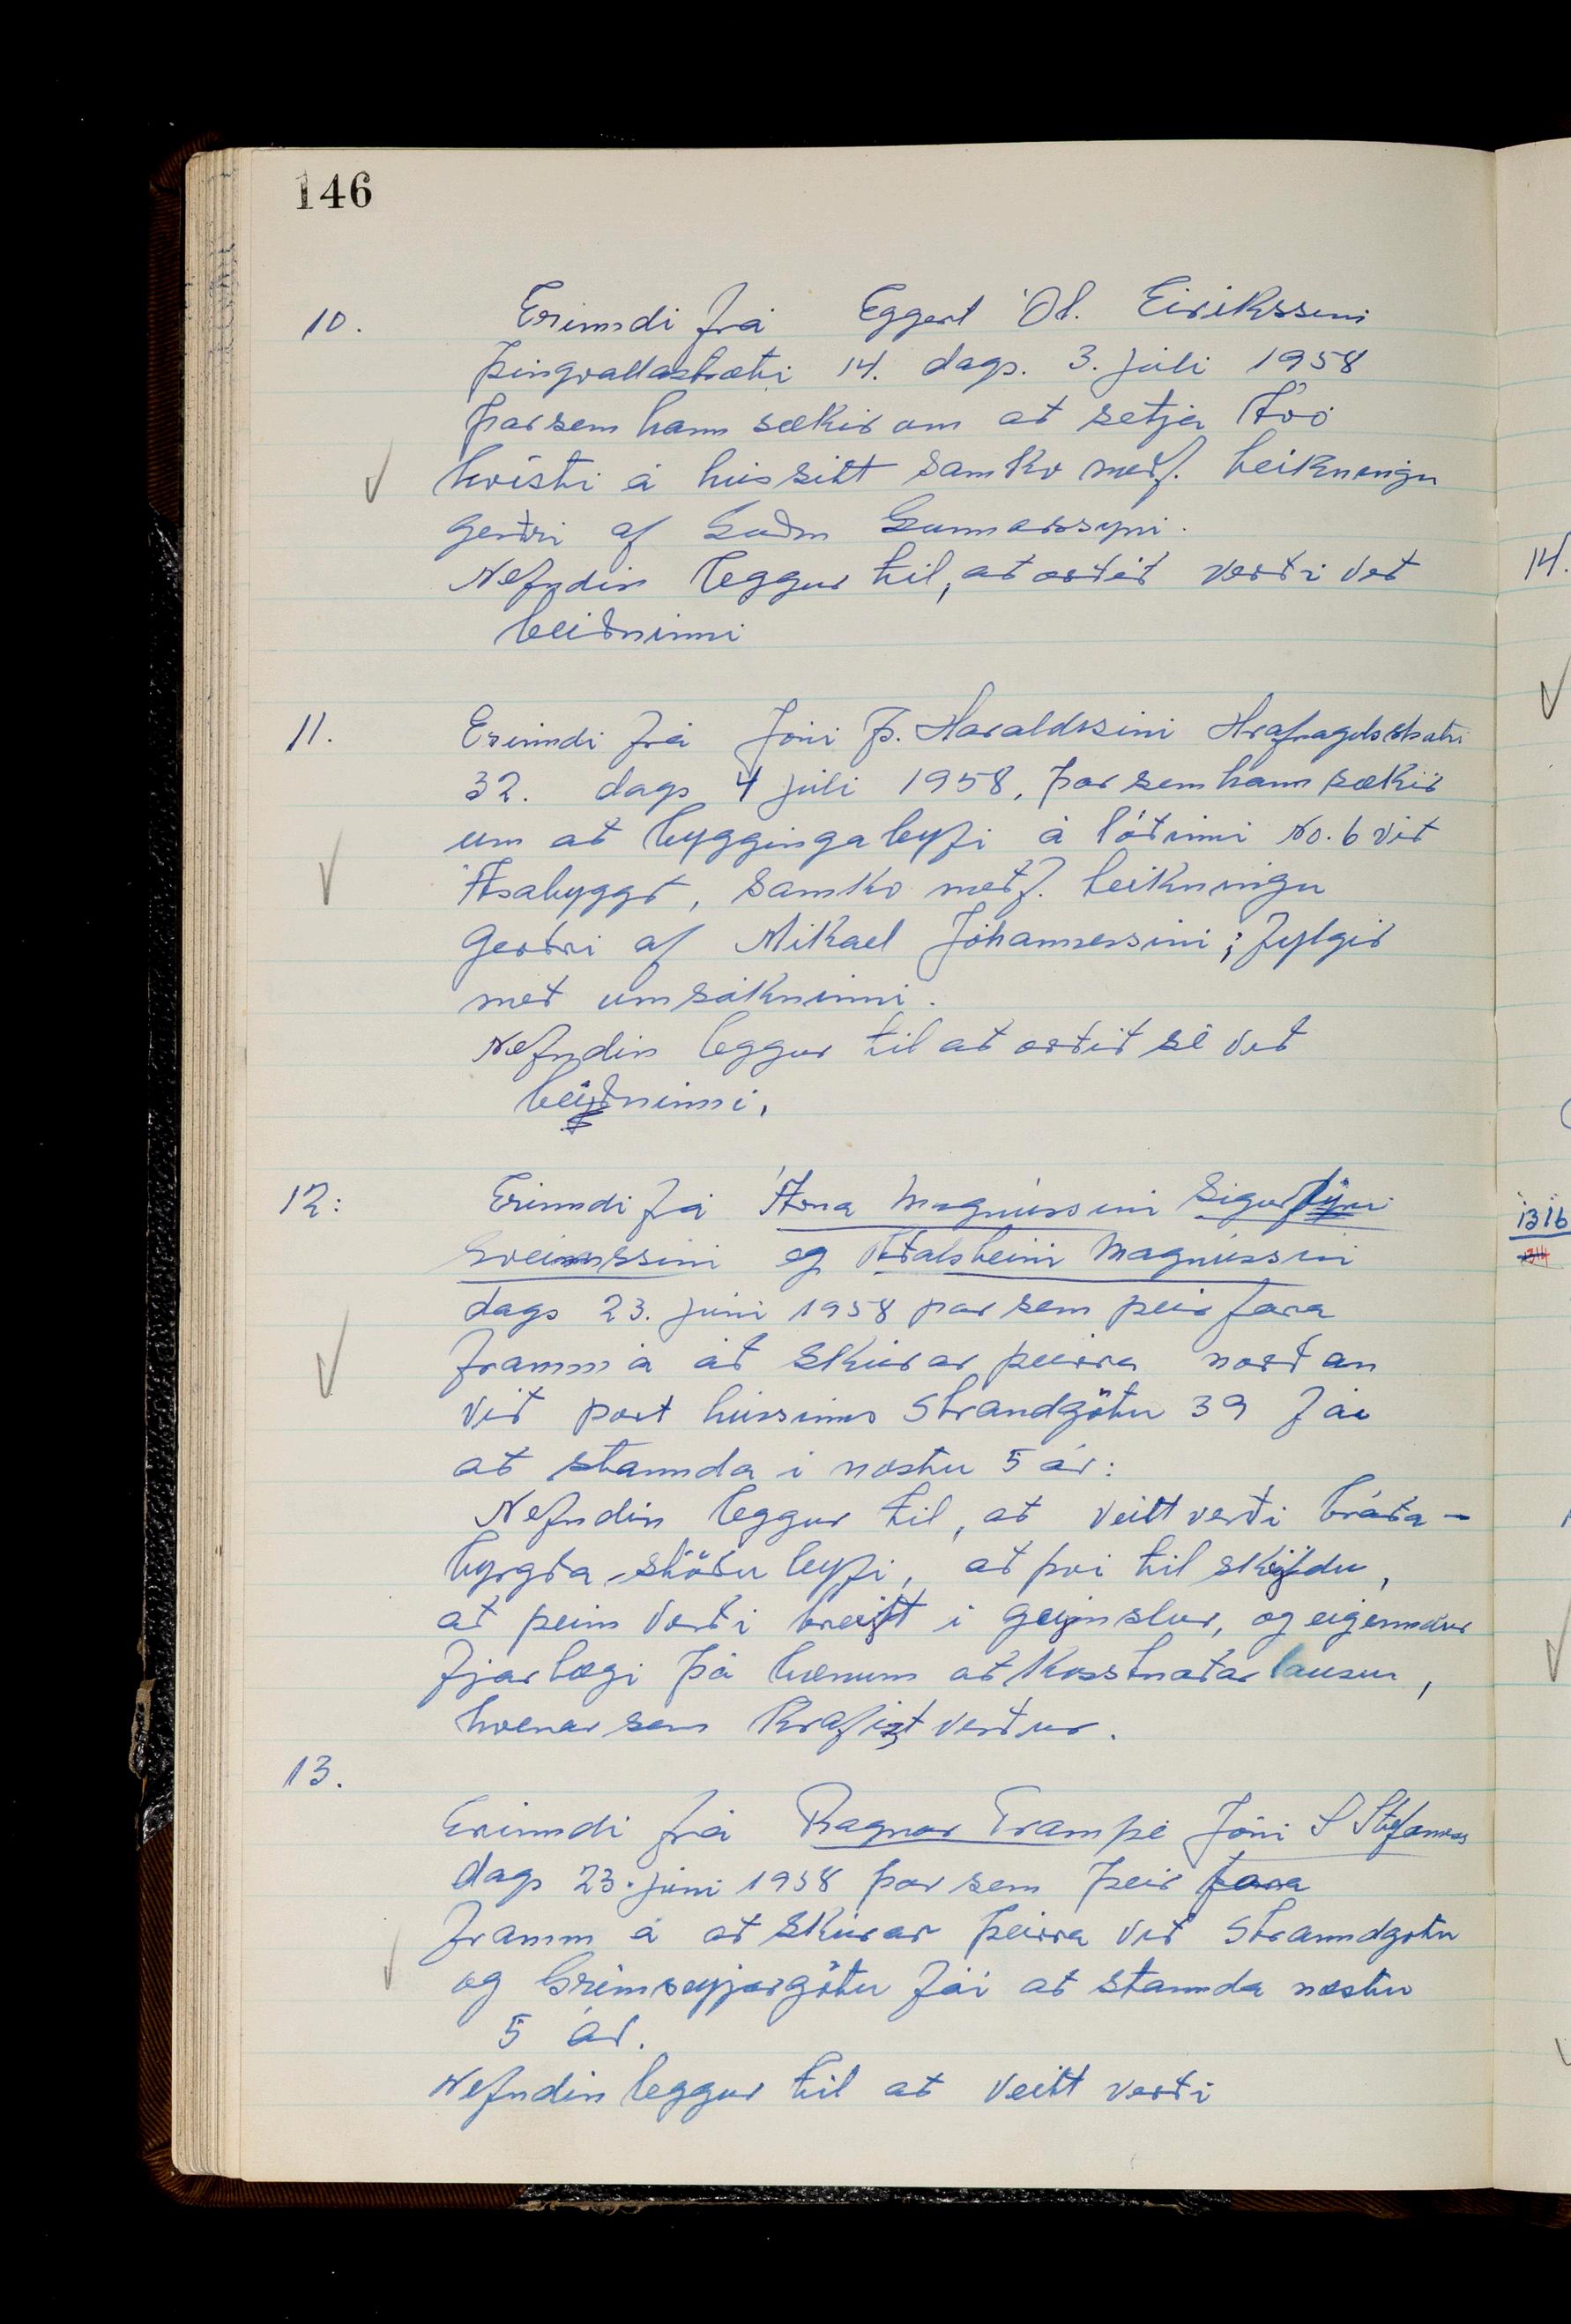 146
10. Erinndi frá Eggert Ól. Eiríkssini
Þingvallastræti 14. dags. 3. júlí 1958
þar sem hann sækir um að setja tvö
kvisti á hús sitt samkv meðf. teikningu
gerðri af Guðm Gunnarssyni.
Nefndin leggur til, að orðið verði við
beiðninni
11. Erinndi frá Jóni Þ. Haraldssini Hrafnagilsstræti
32. dags 4 júlí 1958, þar sem hann sækir
um að byggingaleyfi á lóðinni No. 6 við
Ásabyggð, samkv meðf. teikningu
gerðri af Mikael Jóhannessini; fylgir
með umsókninni.
Nefndin leggur til að orðið sé við
beiðninni.
12: Erinndi frá Árna Magnússini Sigurfinni
Sveinssini og Aðalsteini Magnússini
dags 23. júní 1958 þar sem þeir fara
framm á að skúrar þeirra norðan
við port hússins Strandgötu 39 fái
að stannda i næstu 5 ár:
Nefndin leggur til, að veitt verði bráða-
byrgða-stöðu leyfi, að því til skildu,
at þeim verði breitt í geimslur, og eigenndur
fjarlægi þá bænum að kosstnaðarlausu,
hvenær sem krafizt verður.
13.
Erinndi frá Ragnar Trampe Jóni S Stefánss
dags 23. júní 1958 þar sem þeir fara
framm á að skúrar þeirra við Stranndgötu
og Grímseyjargötu fái at stannda næstu
5 ár.
Nefndin leggur til að veitt verði
14.